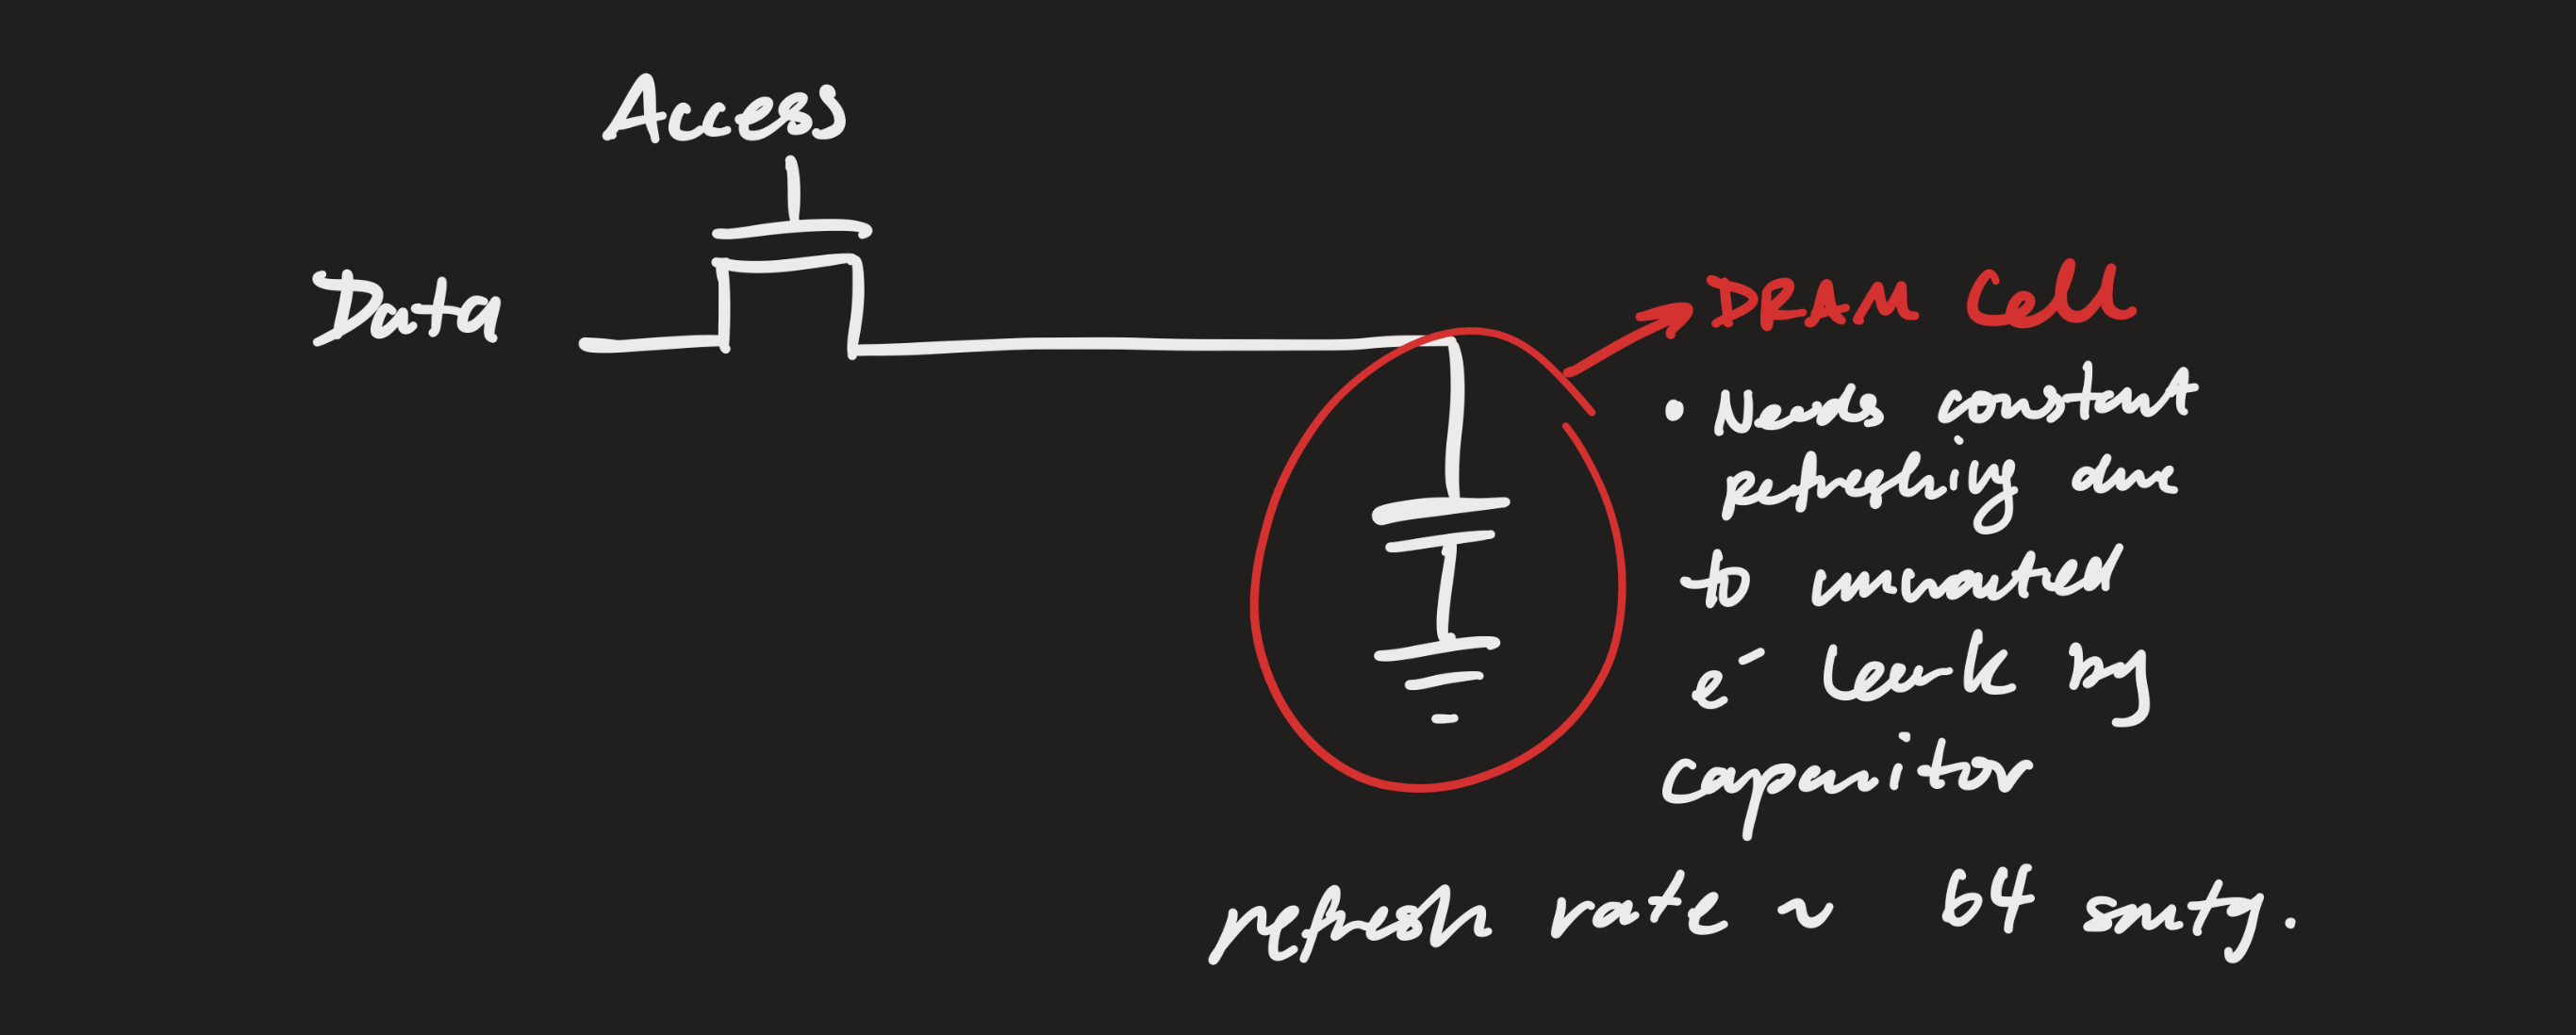 Access
Data
DRAM Cell
• Needs constant
refreshing due
to unwanted
e⁻ leak by
capacitor
refresh rate ~ 64 smtg.